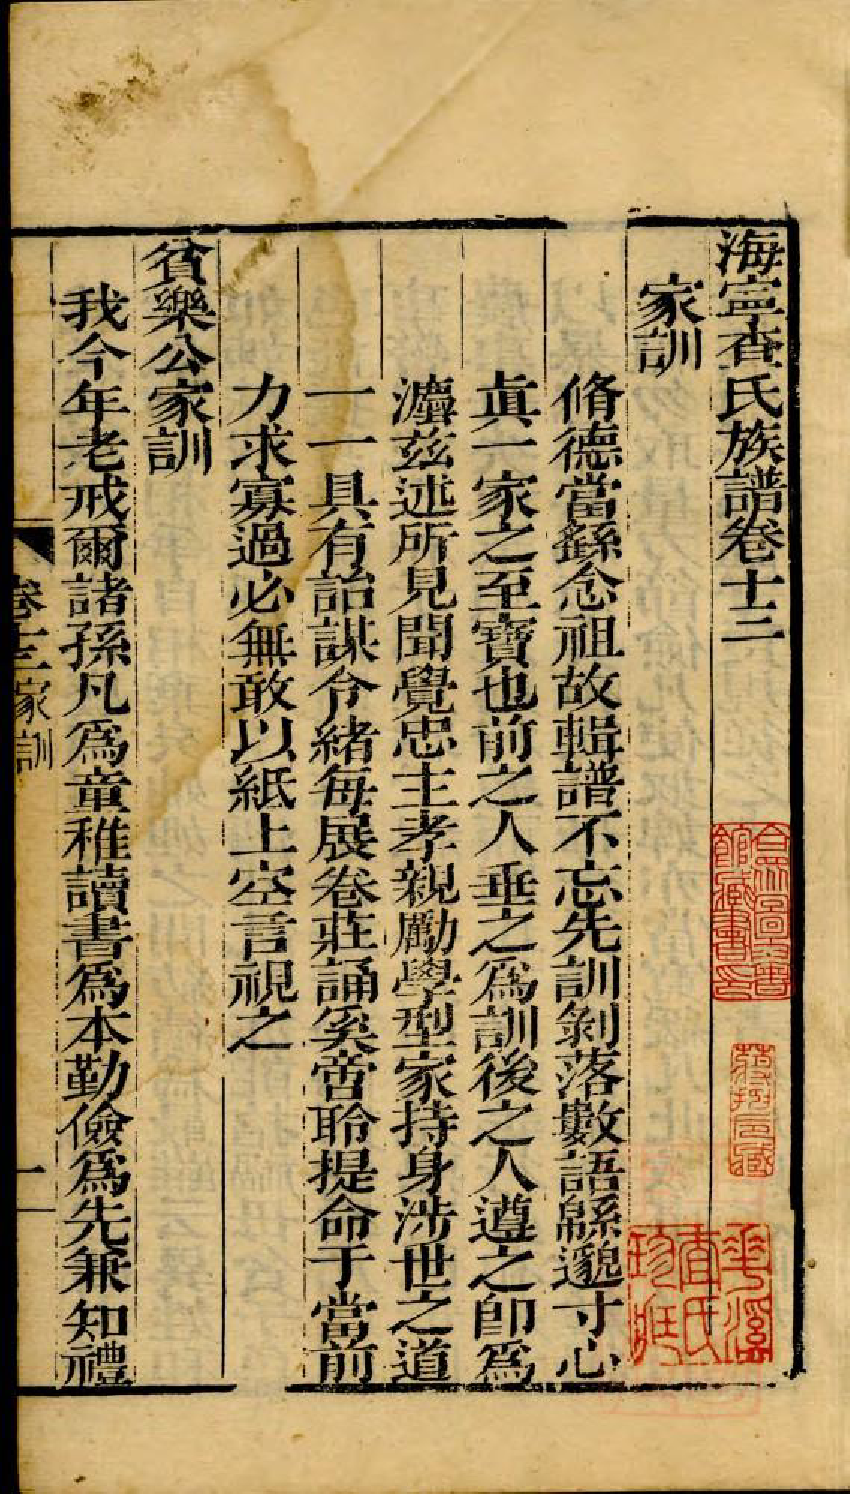 海寧查氏族譜卷十三
家訓
脩德當繇念祖故輯譜不忘先訓剝落數語緜邈寸心
眞一家之至寶也前之人垂之爲訓後之人遵之卽爲
瀆茲述所見聞覺忠主孝親勵學型家持身涉世之道
一一具有詒謀令緒每展卷莊誦奚啻聆提命于當前
力求寡過必無敢以紙上空言視之
貧樂公家訓
我今年老戒爾諸孫凡爲童稚讀書爲本勤儉爲先兼知禮
卷十三家訓
一
合众圖書館藏書印
華溪查氏珍藏